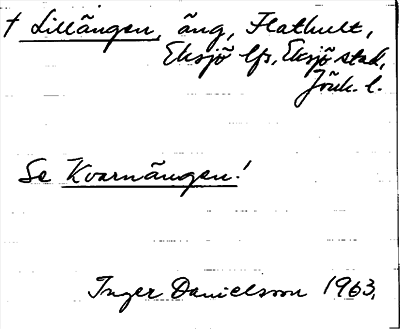 † Lillängen, äng, Flathult,
Eksjö lfs, Eksjö stad,
Jönk. l.
Se Kvarnängen!
Inger Danielsson 1963.